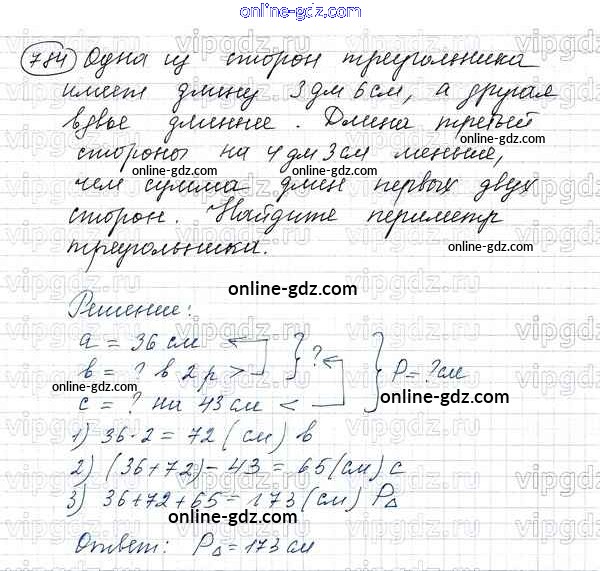 online-gdz.com
784 Одна из сторон треугольника
имеет длину 3 дм 6 см, а другая
вдвое длиннее. Длина третьей
online-gdz.com
стороны на 4 дм 3 см меньше,
online-gdz.com
чем сумма длин первых двух
сторон. Найдите периметр
online-gdz.com
треугольника.
online-gdz.com
Решение:
a = 36 см
online-gdz.com
в = ? в 2 р > } ? } P = ? см
online-gdz.com
c = ? на 43 см <
1) 36·2 = 72 (см) в
2) (36+72)-43 = 65 (см) с
3) 36+72+65 = 173 (см) P△
online-gdz.com
Ответ: P△ = 173 см
online-gdz.com
vipgdz.ru